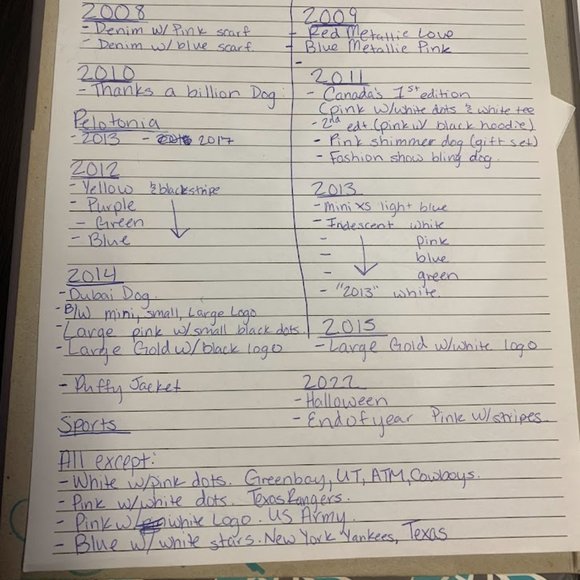 2008
- Denim w/ Pink scarf
- Denim w/ blue scarf.
2009
- Red Metallic Love
- Blue Metallic Pink
-
2010
- Thanks a billion Dog
2011
- Canada's 1st edition
(pink w/white dots & white tee
- 2nd edt (pink w/ black hoodie)
- Pink shimmer dog (gift set)
- Fashion show bling dog.
Pelotonia
- 2013 - 2017
2012
- Yellow & black stripe
- Purple
- Green
- Blue
2013
- mini xs light blue
- Iridescent white
- pink
- blue
- green
- "2013" white.
2014
- Dubai Dog.
- B/W mini, small, Large Logo
- Large pink w/small black dots
- Large Gold w/black logo
2015
- Large Gold w/white logo
- Puffy Jacket
2022
- Halloween
- End of year Pink w/stripes.
Sports
All except:
- White w/pink dots. Greenbay, UT, ATM, Cowboys.
- Pink w/white dots. Texas Rangers.
- Pink w/ white Logo. US Army.
- Blue w/ white stars. New York Yankees, Texas